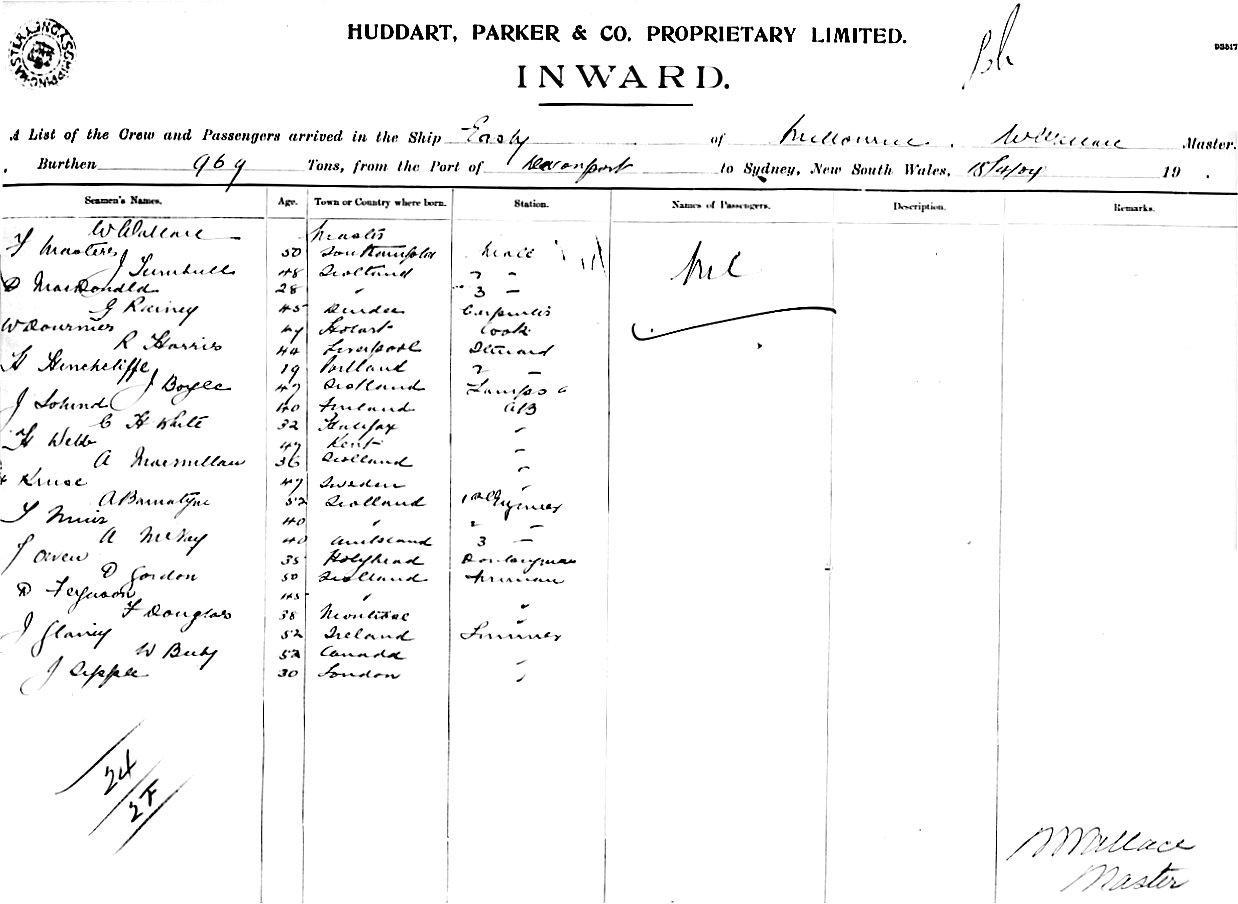 HUDDART, PARKER & CO. PROPRIETARY LIMITED.
INWARD.
A List of the Crew and Passengers arrived in the Ship Easby of Melbourne. W Wallace Master.
Burthen 969 Tons, from the Port of Devonport to Sydney, New South Wales, 15/4/04 19 .
Seamen's Names. Age. Town or Country where born. Station. Names of Passengers. Description. Remarks.
W Wallace Master
T Masters 50 Southampton Mate Nil
J Turnbull 48 Scotland 2 "
D MacDonald 28 " 3 "
G Rainey 45 Dundee Carpenter
W 47 Hobart Cook
R Harris 44 Liverpool Steward
H Hinchcliffe 19 Portland 2 "
J Boyle 47 Scotland Lamps
J 40 Finland AB
C H White 32 Halifax "
H Webb 47 Kent "
A Macmillan 36 Scotland "
Kruse 47 Sweden "
A Bannatyne 52 Scotland 1st Engineer
T Muir 40 " 2 "
A McKay 40 3 "
J Owen 35 Holyhead Donkeyman
D Gordon 50 Scotland Fireman
D Ferguson 45 "
F Douglas 38 Montrose "
J 52 Ireland Trimmer
W 52 Canada
J Sipple 30 London "
24
W Wallace
Master